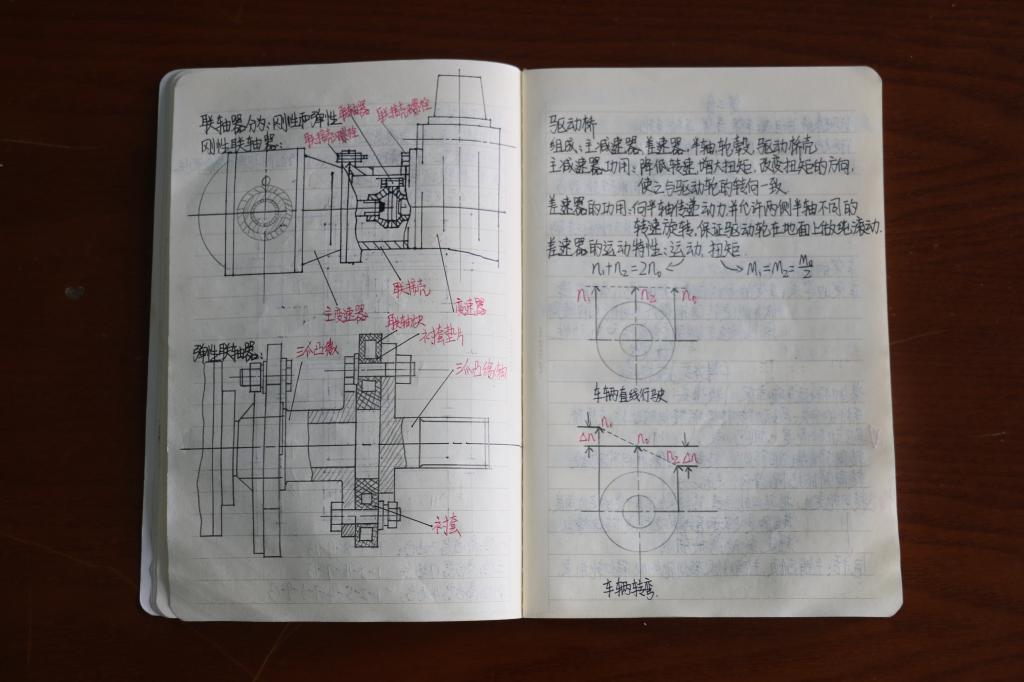 联轴器分为：刚性和弹性
刚性联轴器：
联轴器
联接壳螺栓
联接壳螺栓
联接壳
主变速器
变速器
弹性联轴器：
三爪凸缘
联轴块
衬套垫片
三爪凸缘轴
衬套
驱动桥
组成：主减速器、差速器、半轴、轮毂、驱动桥壳
主减速器功用：降低转速，增大扭矩，改变扭矩的方向，
使之与驱动轮的转向一致
差速器的功用：向半轴传递动力，并允许两侧半轴不同的
转速旋转，保证驱动轮在地面上做纯滚动.
差速器的运动特性：运动、扭矩
n₁+n₂=2n₀
M₁=M₂=M₀/2
n₁
n₂
n₀
车辆直线行驶
n₁
Δn
n₀
n₂
Δn
车辆转弯.